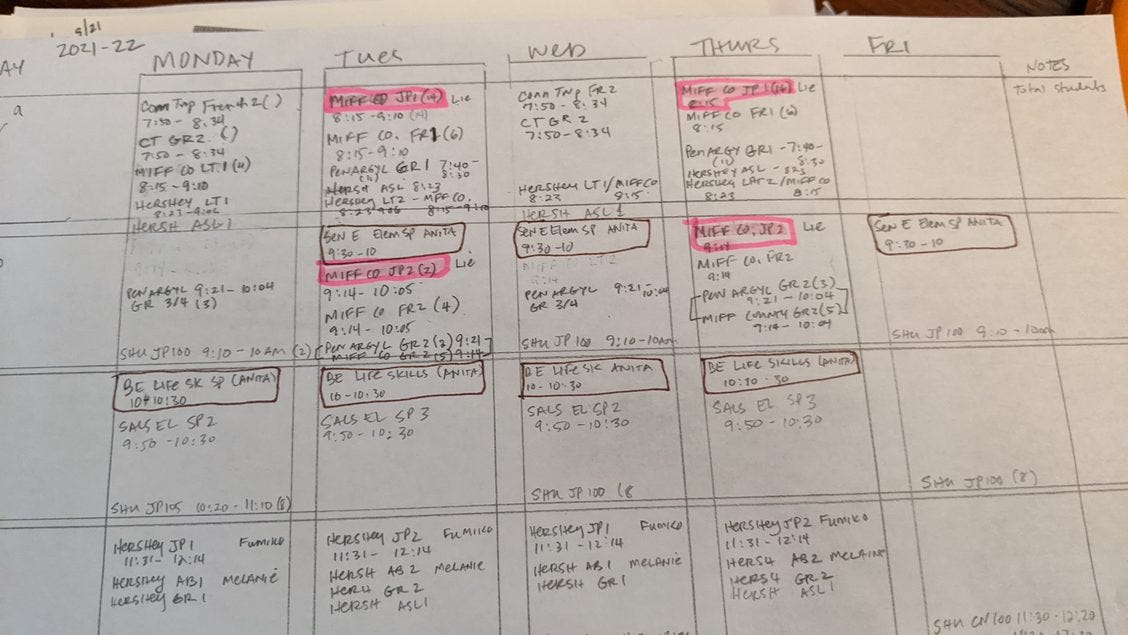 9/21
2021-22
AY
MONDAY
TUES
WED
THURS
FRI
NOTES
Total students
a
Conn Tnp French 2 ( )
7:50 - 8:34
CT GR2 ( )
7:50 - 8:34
MIFF CO LT1 (4)
8:15 - 9:10
HERSHEY LT1
8:23 - 9:06
HERSH ASL 1
MIFF CO JP1 (14) Lie
8:15 - 9:10 (14)
MIFF CO. FR1 (6)
8:15 - 9:10
PEN ARGYL GR1 7:40-
(11) 8:30
HERSH ASL 8:23
HERSHEY LT2 - MIFF CO.
8:23 906 8:15 - 9:10
Conn Tnp FR2
7:50 - 8:34
CT GR 2
7:50 - 8:34
HERSHEY LT1/MIFFCO
8:23
HERSH ASL 1
MIFF CO JP1 (14) Lie
8:15
MIFF CO FR1 (6)
8:15
PEN ARGY GR1 - 7:40-
(11) 8:30
HERSHEY ASL - 823
HERSHEY LAT2/MIFF CO
8:23 8:15
PEN ARGYL 9:21 - 10:04
GR 3/4 (3)
SHU JP100 9:10 - 10AM (2)
SEN E Elem SP ANITA
9:30 - 10
MIFF CO JP2 (2) Lie
9:14 - 10:05
MIFF CO FR2 (4)
9:14 - 10:05
PEN ARGYL GR2 (2) 9:21
MIFF CO GR2 (5) 9:14
SEN E Elem SP ANITA
9:30 - 10
MIFF CO LT2
9:14
PEN ARGYL 9:21 - 10:04
GR 3/4
SHU JP 100 9:10 - 10Am
MIFF CO. JP2 Lie
9:14
MIFF CO. FR2
9:14
PEN ARGYL GR2 (3)
9:21 - 10:04
MIFF COUNTY GR2 (5)
9:14 - 10:04
SEN E Elem SP ANITA
9:30 - 10
SHU JP 100 9:10 - 10am
BE LIFE SK SP (ANITA)
10-10:30
SALS EL SP2
9:50 - 10:30
SHU JP105 10:20 - 11:10 (8)
BE LIFE SKILLS (ANITA)
10 - 10:30
SALS EL SP 3
9:50 - 10:30
BE LIFE SK ANITA
10 - 10:30
SALS EL SP2
9:50 - 10:30
SHU JP100 (8
BE LIFE SKILLS (ANITA)
SALS EL SP3
9:50 - 10:30
SHU JP100 (8)
HERSHEY JP1 FUMIKO
11:31 - 12:14
HERSHEY AB1 MELANIE
HERSHEY GR1
HERSHEY JP2 FUMIKO
11:31 - 12:14
HERSH AB2 MELANIE
HERH GR2
HERSH ASL1
HERSHEY JP1 FUMIKO
11:31 - 12:14
HERSH AB1 MELANIE
HERSH GR1
HERSHEY JP2 FUMIKO
11:31 - 12:14
HERSH AB2 MELAINE
HERSH GR2
HERSH ASL1
SHU CN100 11:30 - 12:20